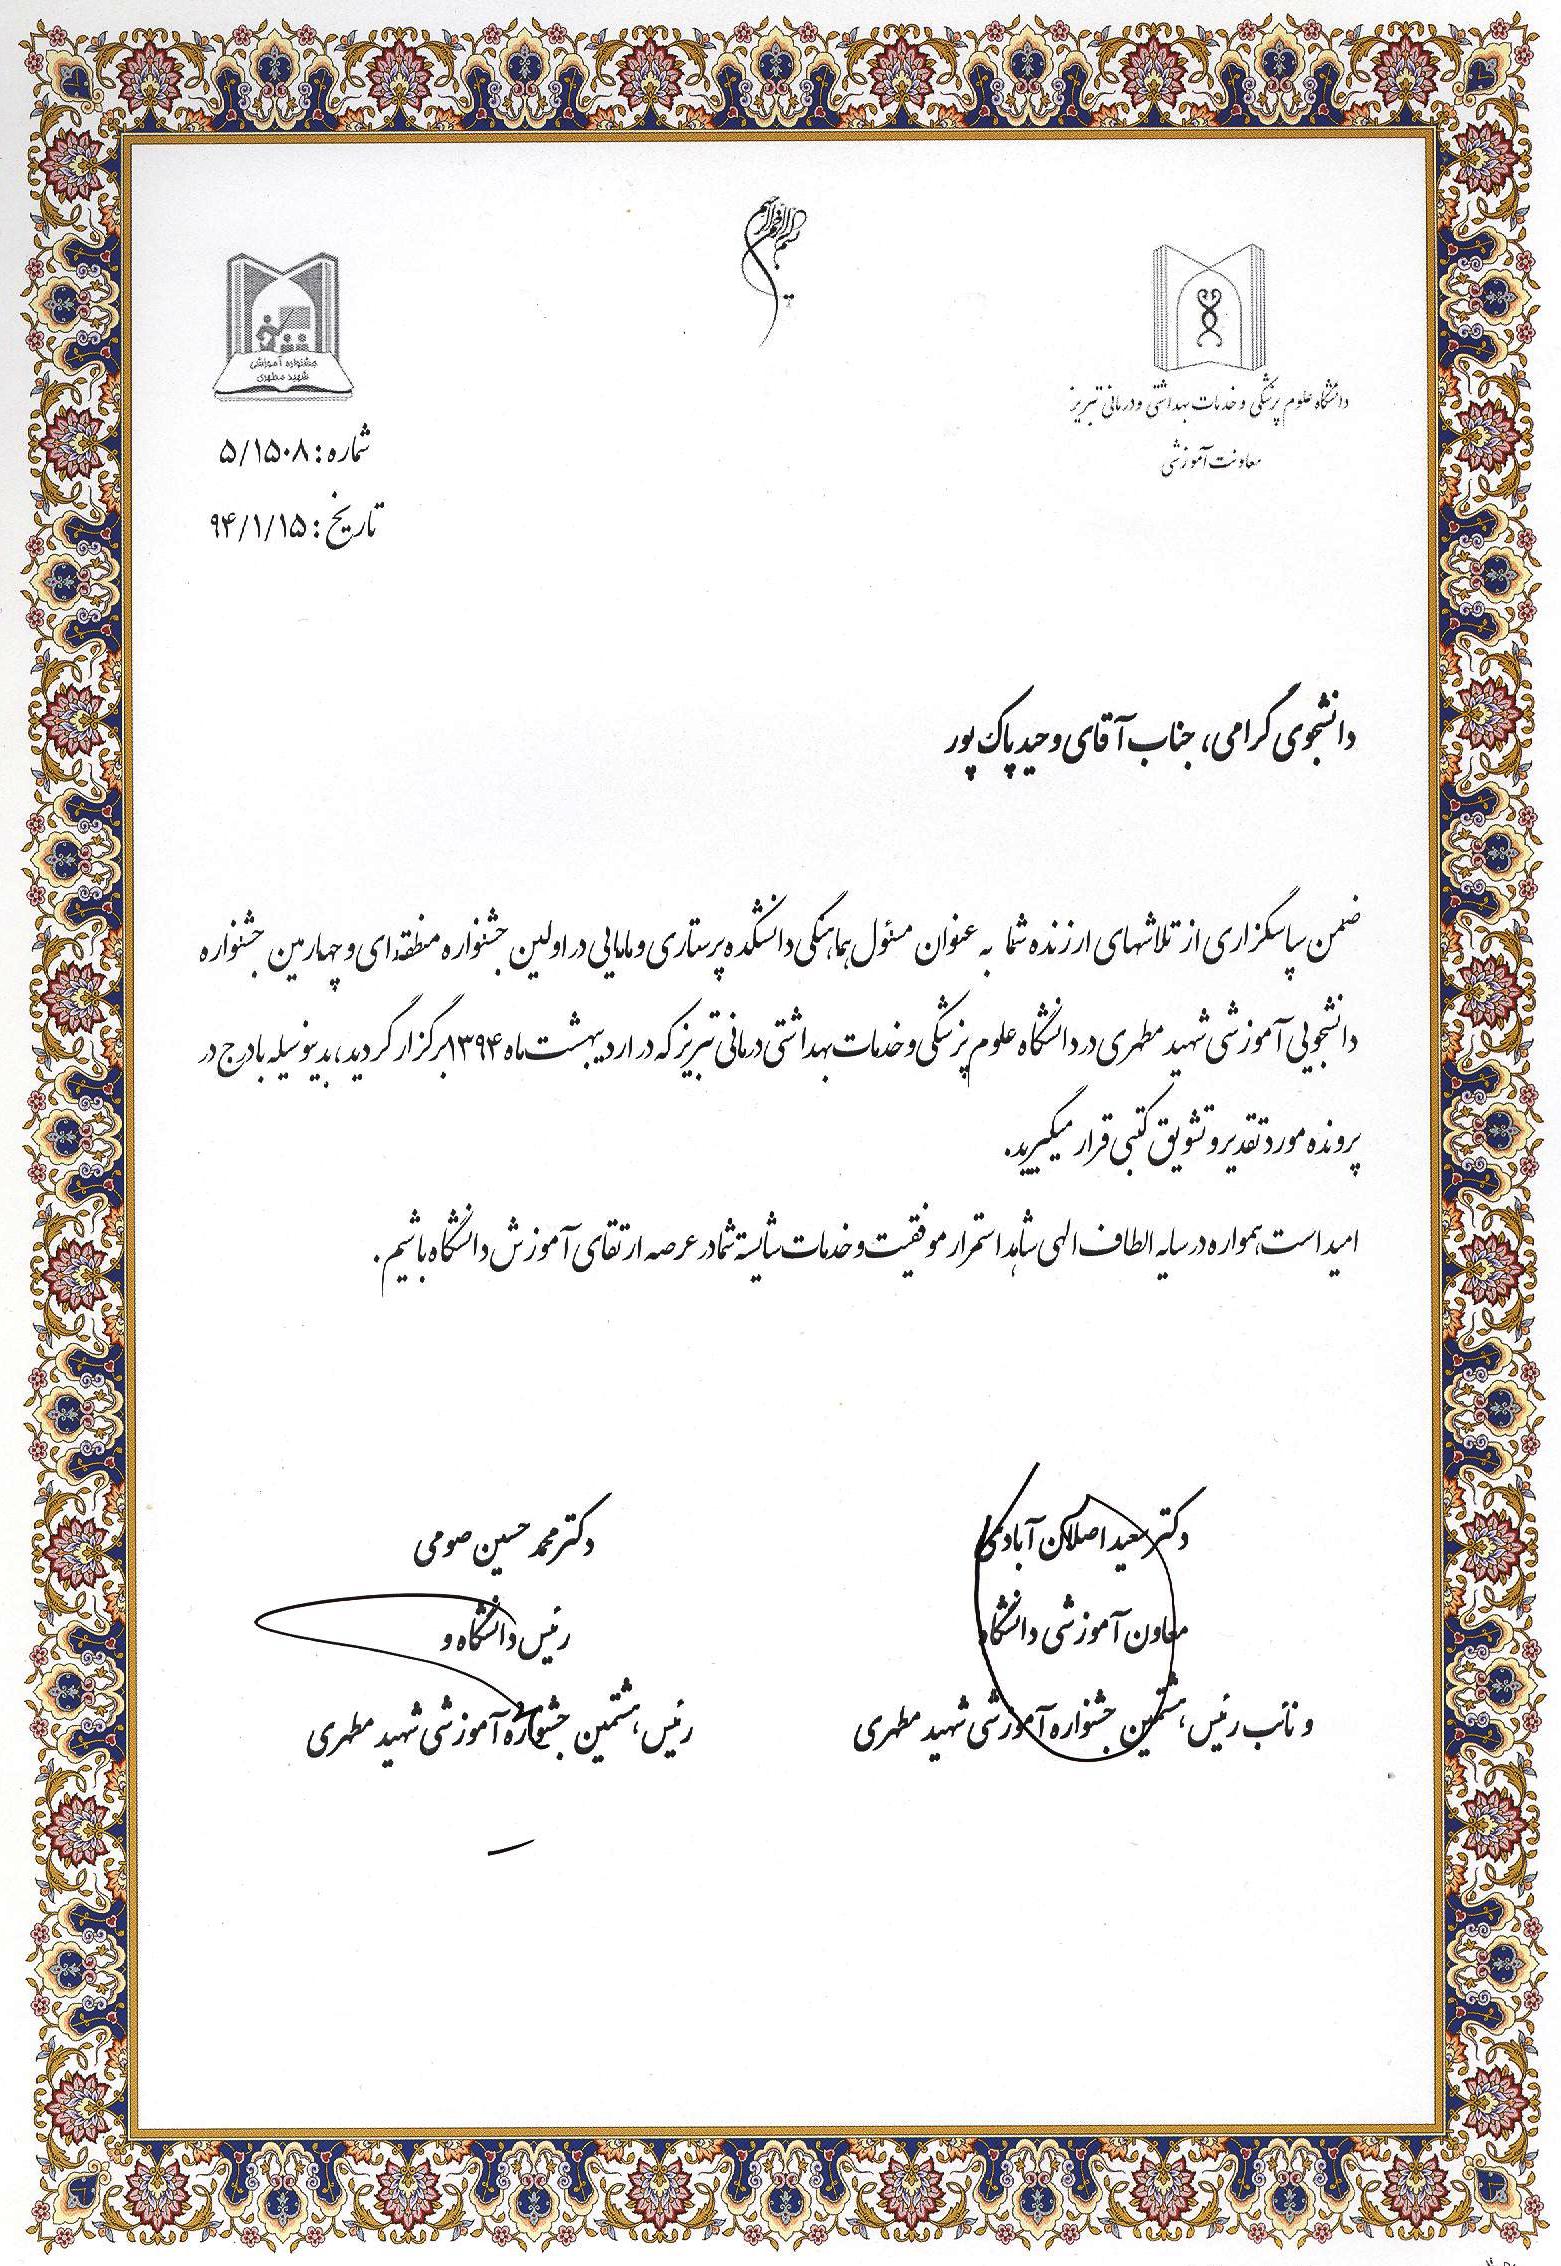 بسم الله الرحمن الرحیم
دانشگاه علوم پزشکی و خدمات بهداشتی و درمانی تبریز
معاونت آموزشی
جشنواره آموزشی
شهید مطهری
شماره : ۵/۱۵۰۸
تاریخ : ۹۴/۱/۱۵
دانشجوی گرامی، جناب آقای وحید پاک پور
ضمن سپاسگزاری از تلاشهای ارزنده شما به عنوان مسئول هماهنگی دانشکده پرستاری و مامایی در اولین جشنواره منطقه ای و چهارمین جشنواره
دانشجویی آموزشی شهید مطهری در دانشگاه علوم پزشکی و خدمات بهداشتی درمانی تبریز که در اردیبهشت ماه ۱۳۹۴ برگزار گردید، بدینوسیله با درج در
پرونده مورد تقدیر و تشویق کتبی قرار میگیرید.
امید است همواره در سایه الطاف الهی شاهد استمرار موفقیت و خدمات شایسته شما در عرصه ارتقای آموزش دانشگاه باشیم.
دکتر سعید اصلان آبادی
معاون آموزشی دانشگاه
و نائب رئیس هشتمین جشنواره آموزشی شهید مطهری
دکتر محمد حسین صومی
رئیس دانشگاه و
رئیس هشتمین جشنواره آموزشی شهید مطهری